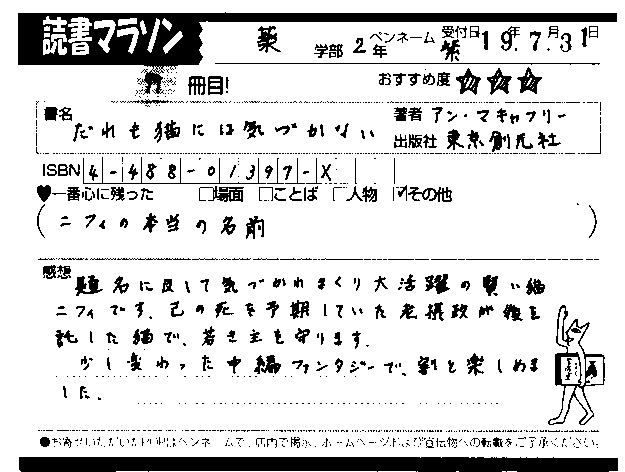 読書マラソン
薬 学部 2年 ペンネーム 紫 受付日 19年7月31日
冊目! おすすめ度 ☆☆☆
書名 だれも猫には気づかない
著者 アン・マキャフリー
出版社 東京創元社
ISBN 4-488-01397-X
♥一番心に残った □場面 □ことば □人物 ☑その他
(ニフィの本当の名前)
感想 題名に反して気づかれまくり大活躍の賢い猫
ニフィです。己の死を予期していた老摂政が後を
託した猫で、若き主を守ります。
少し変わった中編ファンタジーで、割と楽しめま
した。
●お寄せいただいたPOPはペンネームで、店内で掲示、ホームページおよび宣伝物への転載をご了承ください。